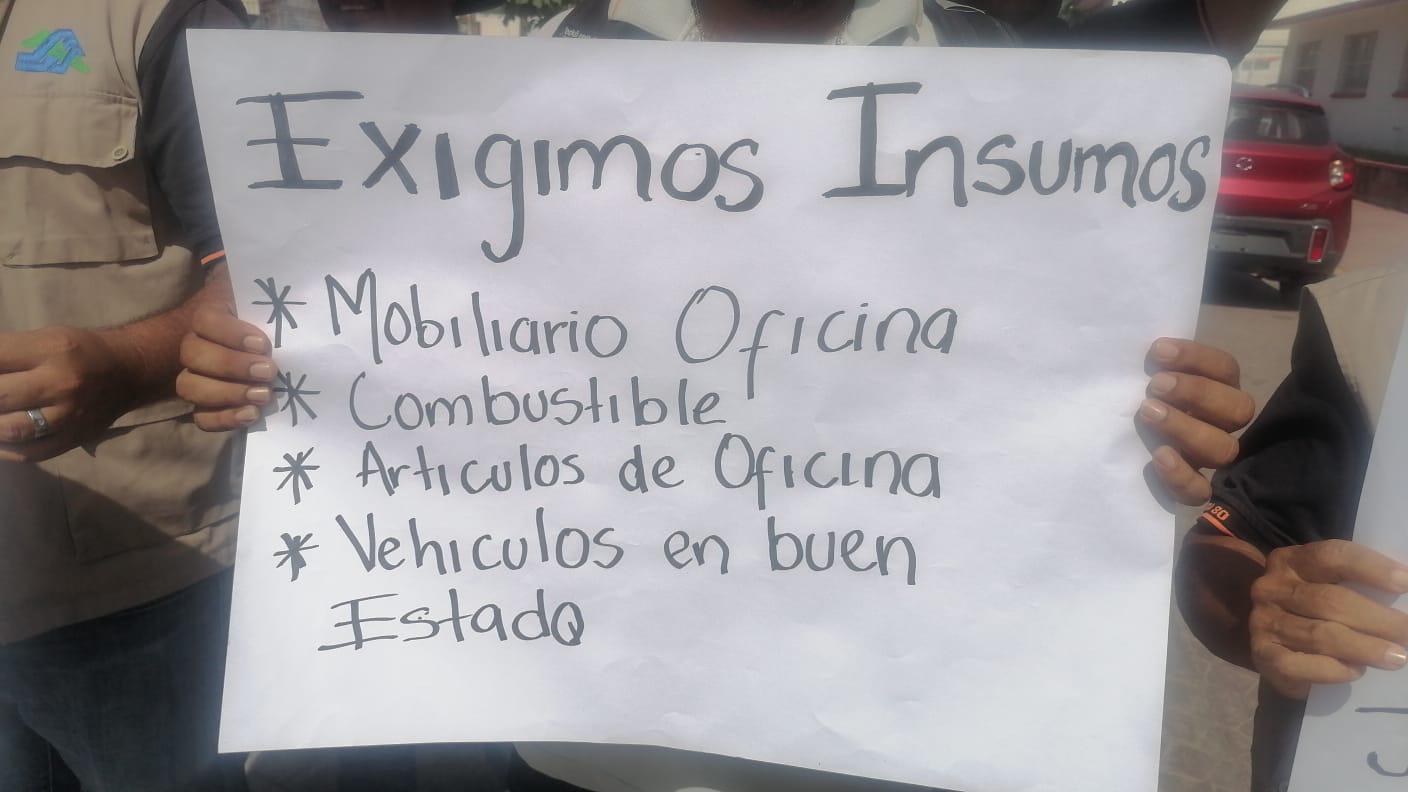 Exigimos Insumos
* Mobiliario Oficina
* Combustible
* Articulos de Oficina
* Vehiculos en buen
Estado